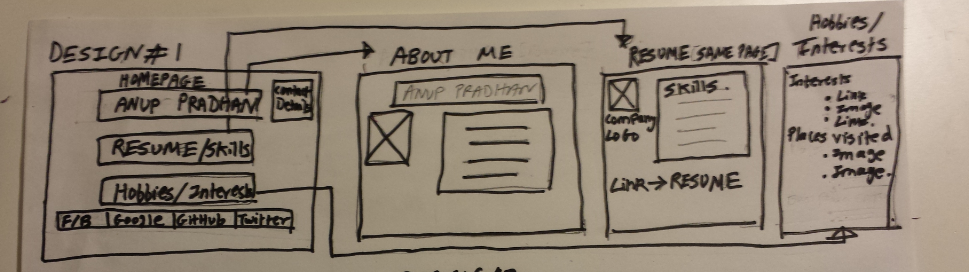 DESIGN#1
HOMEPAGE
ANUP PRADHAN
Contact
Details
RESUME/Skills
Hobbies/Interests
F/B Google GitHub Twitter
ABOUT ME
ANUP PRADHAN
RESUME [SAME PAGE]
SKILLS.
Company
LOGO
Link→RESUME
Hobbies/
Interests
Interests
• Link
• Image
• Link.
Places visited
• Image
• Image.